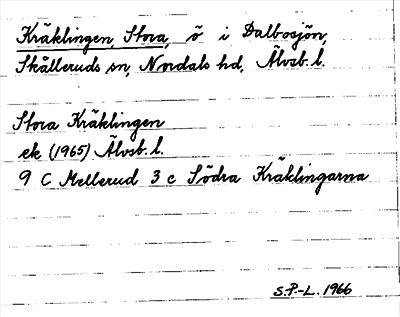 Kräklingen, Stora, ö i Dalbosjön,
Skålleruds sn, Nordals hd, Älvsb. l.
Stora Kräklingen
ek (1965) Älvsb. l.
9 C Mellerud 3 c Södra Kräklingarna
S.P.-L. 1966